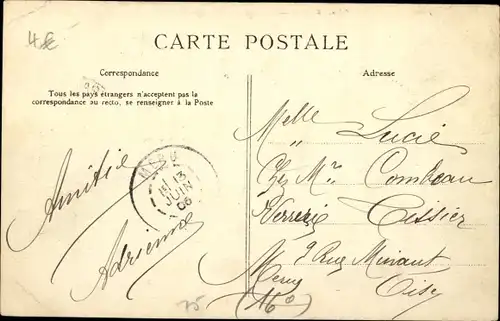 4€
CARTE POSTALE
Correspondance
Tous les pays étrangers n'acceptent pas la
correspondance au recto, se renseigner à la Poste
Amitié
Adrienne
MÉRU
13
JUIN
06
75
Adresse
Melle Lucie
Chez Mr Combeau
Tissier
9 Rue
Meru Oise